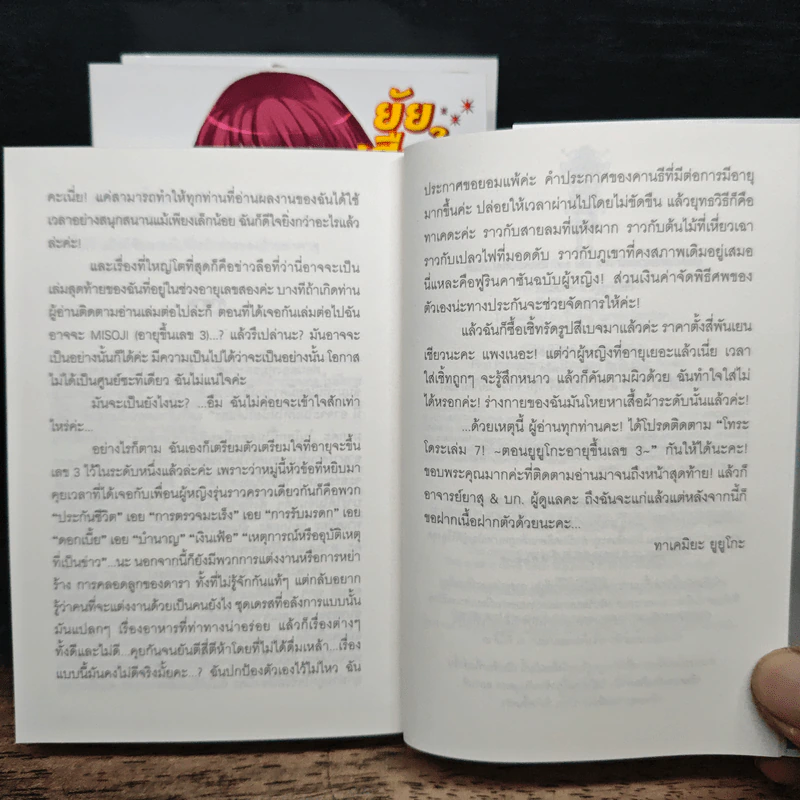 ยัย
คะเนี่ย! แค่สามารถทำให้ทุกท่านที่อ่านผลงานของฉันได้ใช้
เวลาอย่างสนุกสนานแม้เพียงเล็กน้อย ฉันก็ดีใจยิ่งกว่าอะไรแล้ว
ล่ะค่ะ!
และเรื่องที่ใหญ่โตที่สุดก็คือข่าวลือที่ว่านี่อาจจะเป็น
เล่มสุดท้ายของฉันที่อยู่ในช่วงอายุเลขสองค่ะ บางทีถ้าเกิดท่าน
ผู้อ่านติดตามอ่านเล่มต่อไปล่ะก็ ตอนที่ได้เจอกันเล่มต่อไปฉัน
อาจจะ MISOJI (อายุขึ้นเลข 3)...? แล้วรึเปล่านะ? มันอาจจะ
เป็นอย่างนั้นก็ได้ค่ะ มีความเป็นไปได้ว่าจะเป็นอย่างนั้น โอกาส
ไม่ได้เป็นศูนย์ซะทีเดียว ฉันไม่แน่ใจค่ะ
มันจะเป็นยังไงนะ? ...อืม ฉันไม่ค่อยจะเข้าใจสักเท่า
ไหร่ค่ะ...
อย่างไรก็ตาม ฉันเองก็เตรียมตัวเตรียมใจที่อายุจะขึ้น
เลข 3 ไว้ในระดับหนึ่งแล้วล่ะค่ะ เพราะว่าหมู่นี้หัวข้อที่หยิบมา
คุยเวลาที่ได้เจอกับเพื่อนผู้หญิงรุ่นราวคราวเดียวกันก็คือพวก
“ประกันชีวิต” เอย “การตรวจมะเร็ง” เอย “การรับมรดก” เอย
“ดอกเบี้ย” เอย “บำนาญ” “เงินเฟ้อ” “เหตุการณ์หรืออุบัติเหตุ
ที่เป็นข่าว”...นะ นอกจากนี้ก็ยังมีพวกการแต่งงานหรือการหย่า
ร้าง การคลอดลูกของดารา ทั้งที่ไม่รู้จักกันแท้ๆ แต่กลับอยาก
รู้ว่าคนที่จะแต่งงานด้วยเป็นคนยังไง ชุดเดรสที่อลังการแบบนั้น
มันแปลกๆ เรื่องอาหารที่ท่าทางน่าอร่อย แล้วก็เรื่องต่างๆ
ทั้งดีและไม่ดี...คุยกันจนยันตีสี่ตีห้าโดยที่ไม่ได้ดื่มเหล้า...เรื่อง
แบบนี้มันคงไม่ดีจริงมั้ยคะ...? ฉันปกป้องตัวเองไว้ไม่ไหว ฉัน
ประกาศขอยอมแพ้ค่ะ คำประกาศของคานธีที่มีต่อการมีอายุ
มากขึ้นค่ะ ปล่อยให้เวลาผ่านไปโดยไม่ขัดขืน แล้วยุทธวิธีก็คือ
ทาเคดะค่ะ ราวกับสายลมที่แห้งผาก ราวกับต้นไม้ที่เหี่ยวเฉา
ราวกับเปลวไฟที่มอดดับ ราวกับภูเขาที่คงสภาพเดิมอยู่เสมอ
นี่แหละคือฟูรินคาซันฉบับผู้หญิง! ส่วนเงินค่าจัดพิธีศพของ
ตัวเองน่ะทางประกันจะช่วยจัดการให้ค่ะ!
แล้วฉันก็ซื้อเชิ้ทรัดรูปสีเบจมาแล้วค่ะ ราคาตั้งสี่พันเยน
เชียวนะคะ แพงเนอะ! แต่ว่าผู้หญิงที่อายุเยอะแล้วเนี่ย เวลา
ใส่เชิ้ทถูกๆ จะรู้สึกหนาว แล้วก็คันตามผิวด้วย ฉันทำใจใส่ไม่
ได้หรอกค่ะ! ร่างกายของฉันมันโหยหาเสื้อผ้าระดับนั้นแล้วค่ะ!
...ด้วยเหตุนี้ ผู้อ่านทุกท่านคะ! ได้โปรดติดตาม “โทระ
โดระเล่ม 7! ~ตอนยูยูโกะอายุขึ้นเลข 3~” กันให้ได้นะคะ!
ขอบพระคุณมากค่ะที่ติดตามอ่านมาจนถึงหน้าสุดท้าย! แล้วก็
อาจารย์ยาสุ & บก. ผู้ดูแลคะ ถึงฉันจะแก่แล้วแต่หลังจากนี้ก็
ขอฝากเนื้อฝากตัวด้วยนะคะ...
ทาเคมิยะ ยูยูโกะ